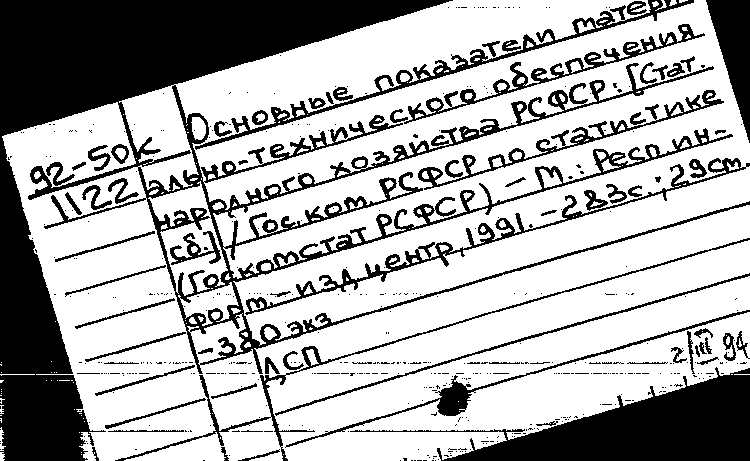 Основные показатели матери-
92-50К ально-технического обеспечения
1122 народного хозяйства РСФСР: [Стат.
сб.] / Гос. ком. РСФСР по статистике
(Госкомстат РСФСР) – М.: Респ. ин-
форм.-изд. центр, 1991. – 283с.; 29см.
– 380 экз
ДСП
2/III 94